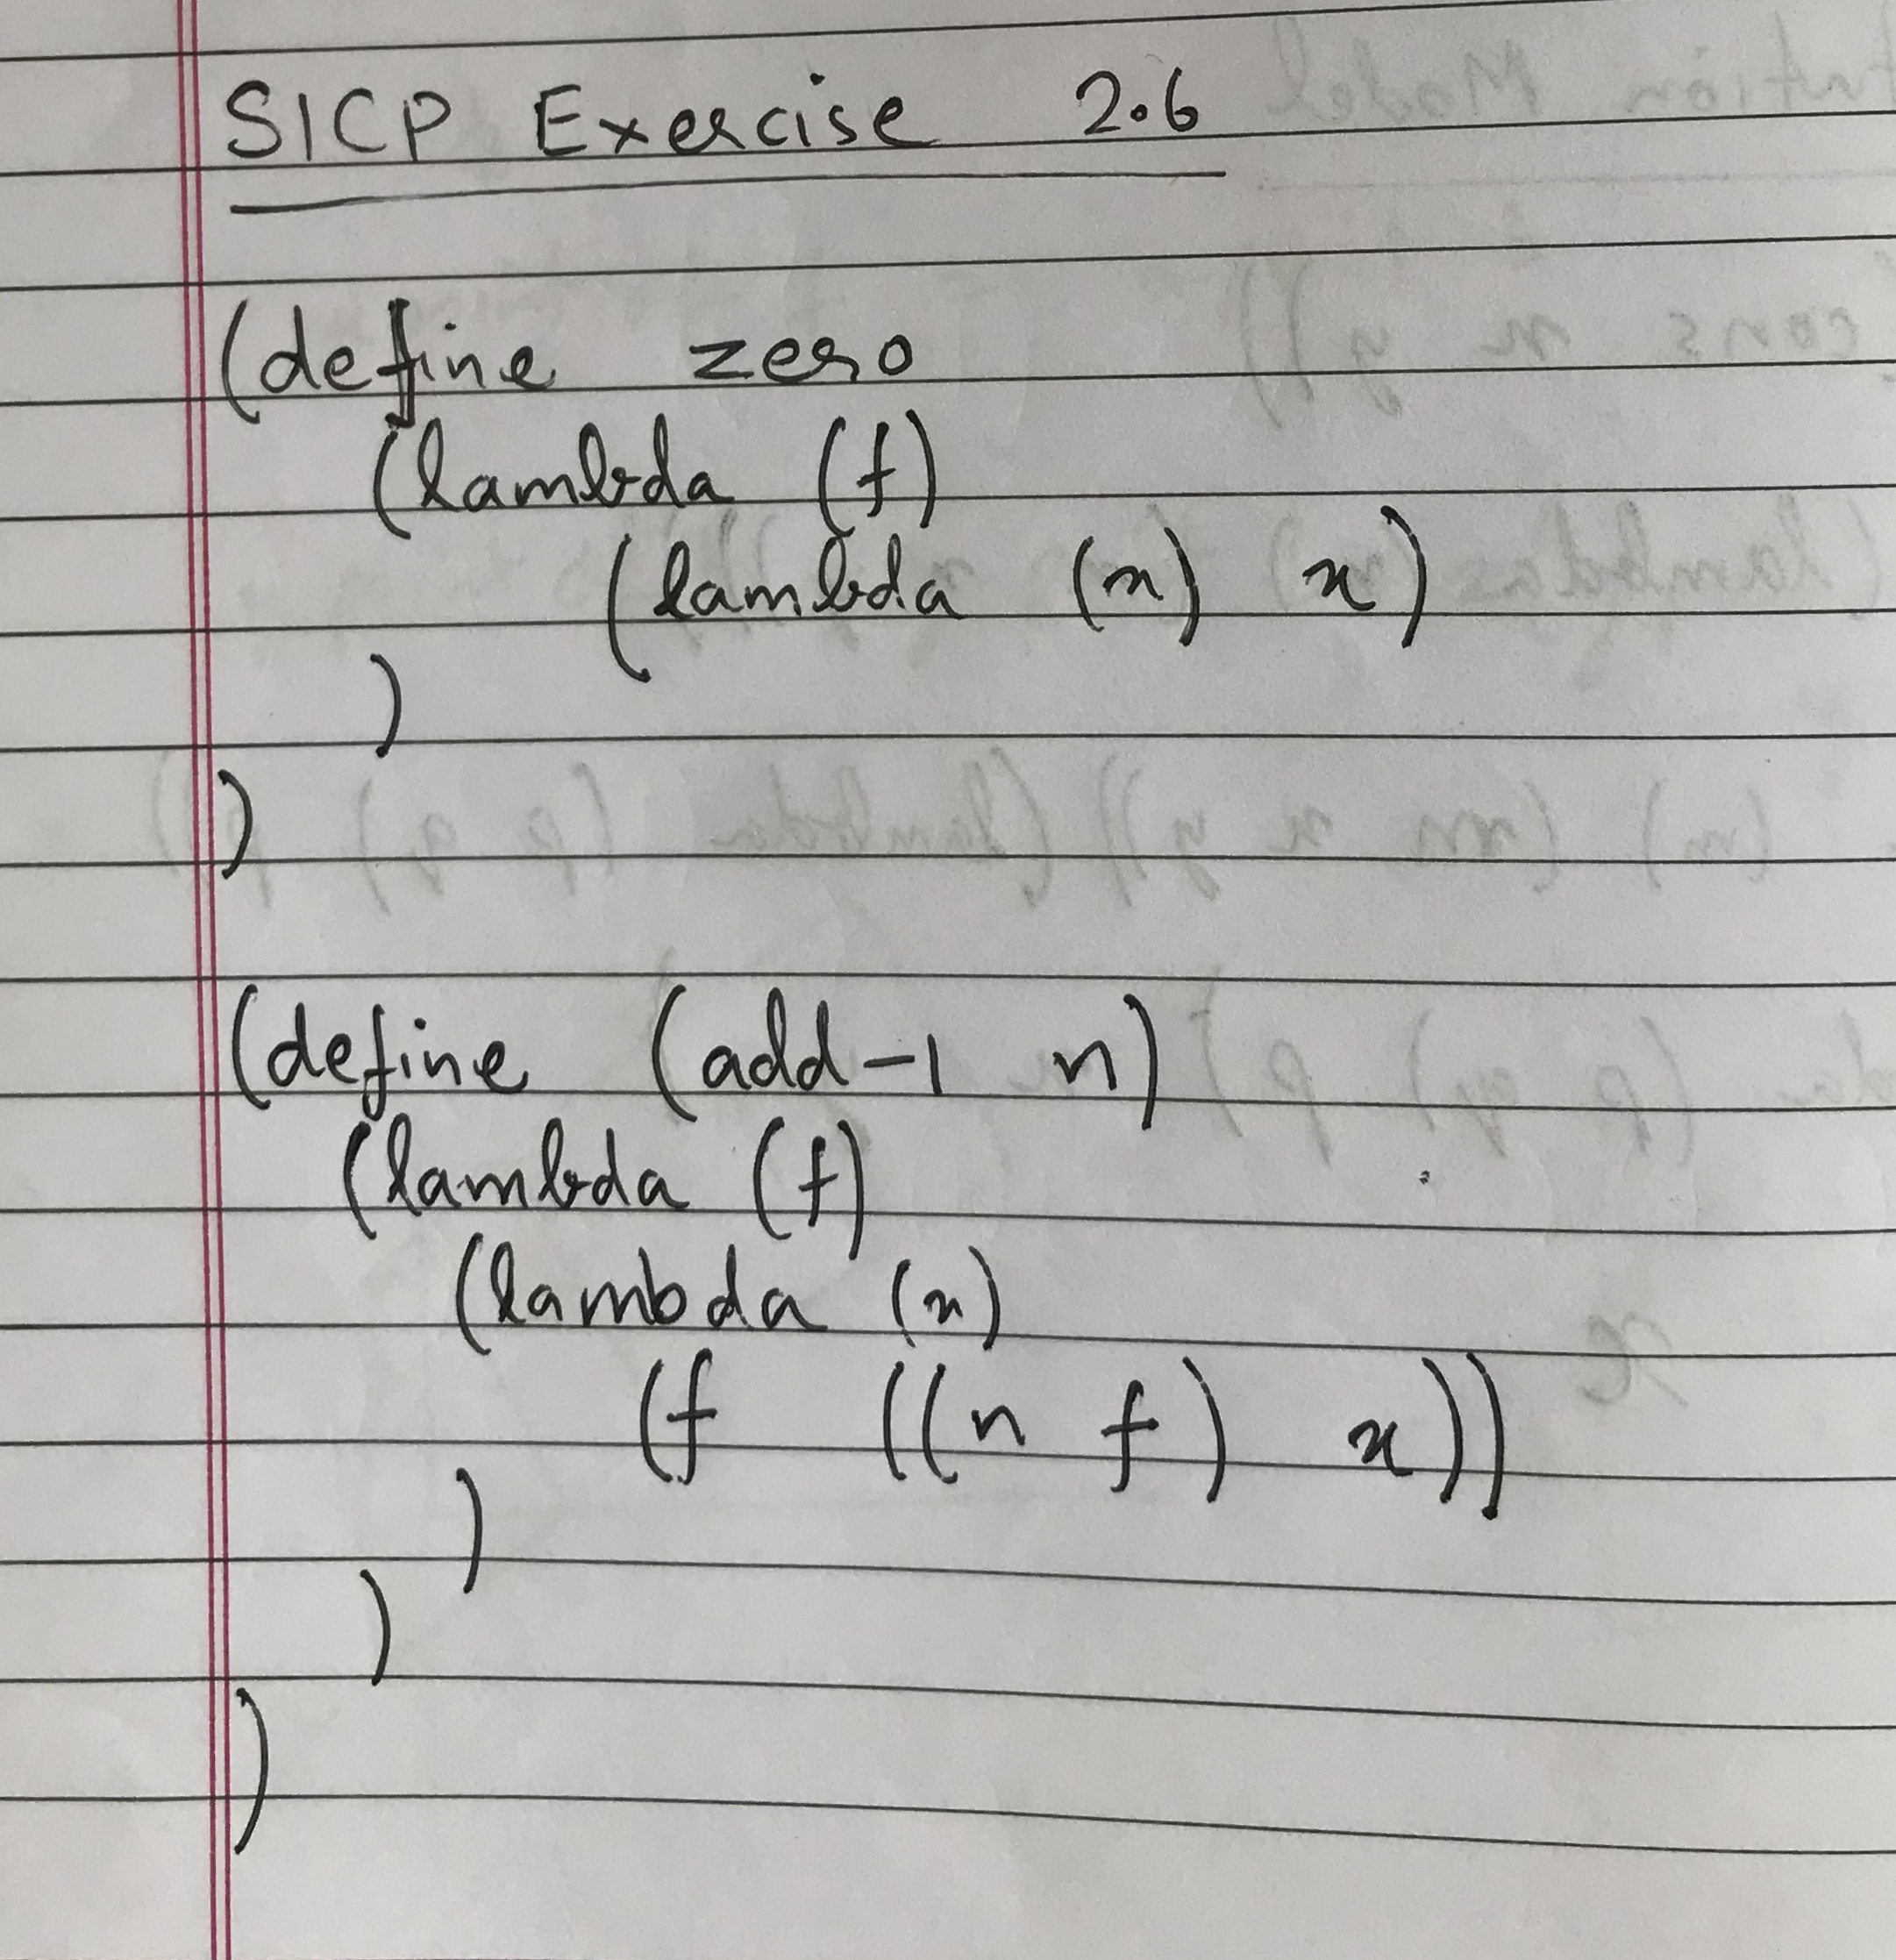 SICP Exercise 2.6
(define zero
(lambda (f)
(lambda (x) x)
)
)
(define (add-1 n)
(lambda (f)
(lambda (x)
(f ((n f) x))
)
)
)